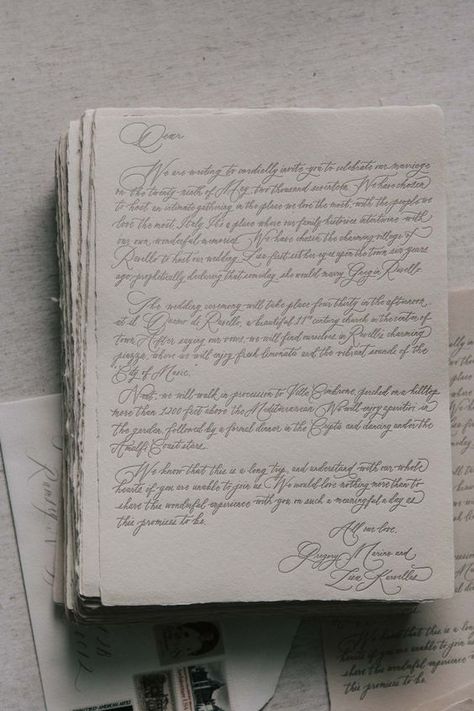 Dear
We are writing to cordially invite you to celebrate our marriage
on the twenty-ninth of May, two thousand seventeen. We have chosen
to host an intimate gathering in the place we love the most, with the people we
love the most. Italy. It's a place where our family histories intertwine with
our own, wonderful memories. We have chosen the charming village of
Ravello to host our wedding. Lisa first set her eyes upon the town six years
ago, prophetically declaring that someday she would marry Greg in Ravello.
The wedding ceremony will take place four thirty in the afternoon,
at il Duomo di Ravello, a beautiful 11th century church in the centre of
town. After saying our vows, we will find ourselves in Ravello's charming
piazza, where we will enjoy fresh limonata and the vibrant sounds of the
"City of Music."
Next, we will walk in procession to Villa Cimbrone, perched on a hilltop
more than 1200 feet above the Mediterranean. We will enjoy aperitivi in
the garden, followed by a formal dinner in the Crypta and dancing under the
Amalfi Coast stars.
We know that this is a long trip, and understand with our whole
hearts if you are unable to join us. We would love nothing more than to
share this wonderful experience with you on such a meaningful a day as
this promises to be.
All our love,
Gregory Marino and
Lisa
We know that this is a long
are unable to join
share this wonderful
this promises to be.